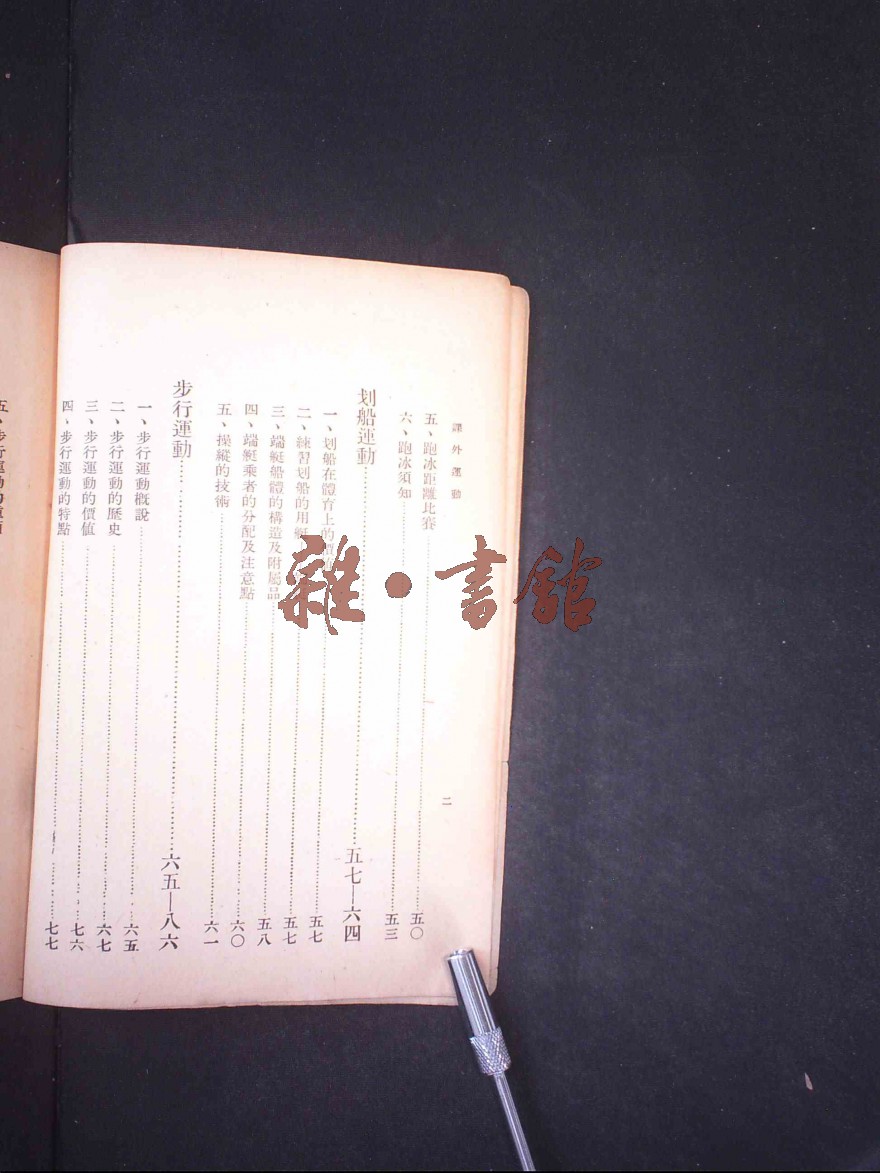 課外運動
二
五、跑冰距離比賽……五〇
六、跑冰須知……五三
划船運動……五七—六四
一、划船在體育上的價值……五七
二、練習划船的用艇……五七
三、端艇船體的構造及附屬品……五八
四、端艇乘者的分配及注意點……六〇
五、操縱的技術……六一
步行運動……六五—八六
一、步行運動概說……六五
二、步行運動的歷史……六七
三、步行運動的價值……七六
四、步行運動的特點……七七
五、步行運動的
雜·書館